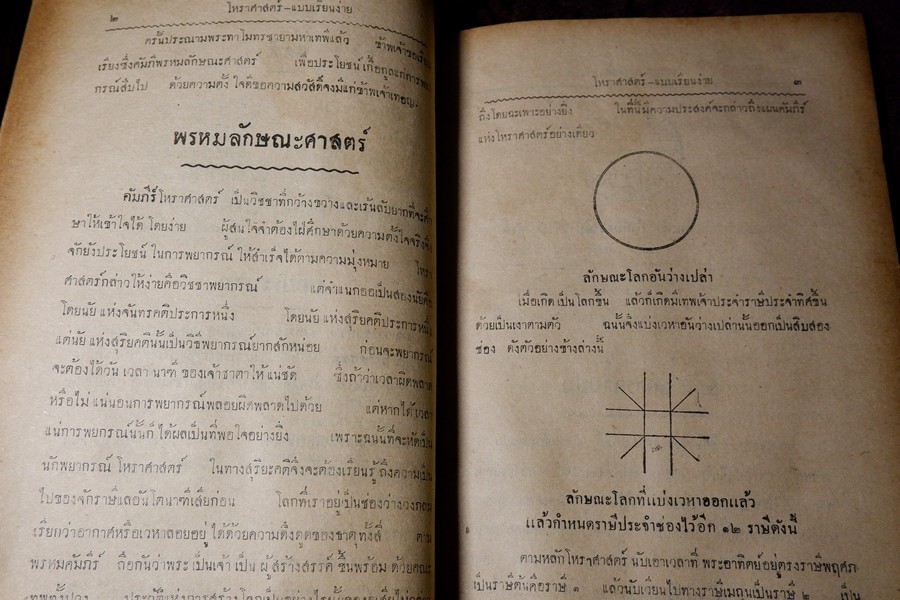 ๒
โหราศาสตร์-แบบเรียนง่าย
ครั้นประณามพระทาไมทรชายามหาเทพีแล้ว ข้าพเจ้าขอเรียบ
เรียงซึ่งคัมภีพรหมลักษณะศาสตร์ เพื่อประโยชน์เกื้อกูลแก่การพยา
กรณ์สืบไป ด้วยความตั้งใจดีขอความสวัสดีจงมีแก่ข้าพเจ้าเทอญ.
พรหมลักษณะศาสตร์
คัมภีร์โหราศาสตร์ เป็นวิชชาที่กว้างขวางและเร้นลับยากที่จะศึก
ษาให้เข้าใจได้โดยง่าย ผู้สนใจจำต้องใฝ่ศึกษาด้วยความตั้งใจจริงจึง
จักยังประโยชน์ ในการพยากรณ์ ให้สำเร็จได้ตามความมุ่งหมาย โหรา
ศาสตร์กล่าวให้ง่ายคือวิชชาพยากรณ์ แต่จำแนกออกเป็นสองนัยคือ
โดยนัย แห่งจันทรคติประการหนึ่ง โดยนัย แห่งสุริยคติประการหนึ่ง
แต่นัย แห่งสุริยคตินั้นเป็นวิธีพยากรณ์ยากสักหน่อย ก่อนจะพยากรณ์
จะต้องได้วัน เวลา นาฑี ของเจ้าชาตาให้ แน่ชัด ซึ่งถ้าว่าเวลาผิดพลาด
หรือไม่ แน่นอนการพยากรณ์พลอยผิดพลาดไปด้วย แต่หากได้เวลา
แน่การพยกรณ์นั้นก็ ได้ผลเป็นที่พอใจอย่างยิ่ง เพราะฉนั้นที่จะหัดเป็น
นักพยากรณ์ โหราศาสตร์ ในทางสุริยะคติจึงจะต้องเรียนรู้ถึงความเป็น
ไปของจักราษีแลอันโตนาฑีเสียก่อน โลกที่เราอยู่เป็นช่องว่างวงกลม
เรียกว่าอากาศหรือเวหาลอยอยู่ ได้ด้วยความดึงดูดของธาตุ ทั้งสี่ ตาม
พรหมคัมภีร์ ถือกันว่าพระเป็นเจ้าเป็น ผู้สร้างสรรค์ ขึ้นพร้อม ด้วยคณะ
เทพทั้งปวง
โหราศาสตร์-แบบเรียนง่าย
๓
ถึงโดยฉะเพาะอย่างยิ่ง ในที่นี้มีความประสงค์จะกล่าวถึงแผนคัมภีร์
แห่งโหราศาสตร์อย่างเดียว
ลักษณะโลกอันว่างเปล่า
เมื่อเกิดเป็นโลกขึ้น แล้วก็เกิดมีเทพเจ้าประจำราษีประจำทิศขึ้น
ด้วยเป็นเงาตามตัว ฉนั้นจึงแบ่งเวหาอันว่างเปล่านั้นออกเป็นสิบสอง
ช่อง ดังตัวอย่างข้างล่างนี้
ลักษณะโลกที่แบ่งเวหาออกแล้ว
แล้วกำหนดราษีประจำช่องไว้อีก ๑๒ ราษีดังนี้
ตามหลักโหรฺาศาสตร์ นับเอาเวลาที่ พระอาทิตย์อยู่ตรงราษีพฤศภ
เป็นราษีต้นคือราษี ๑ แล้วนับเวียนไปทางราษีเมถุนเป็นราษี ๒ เป็น